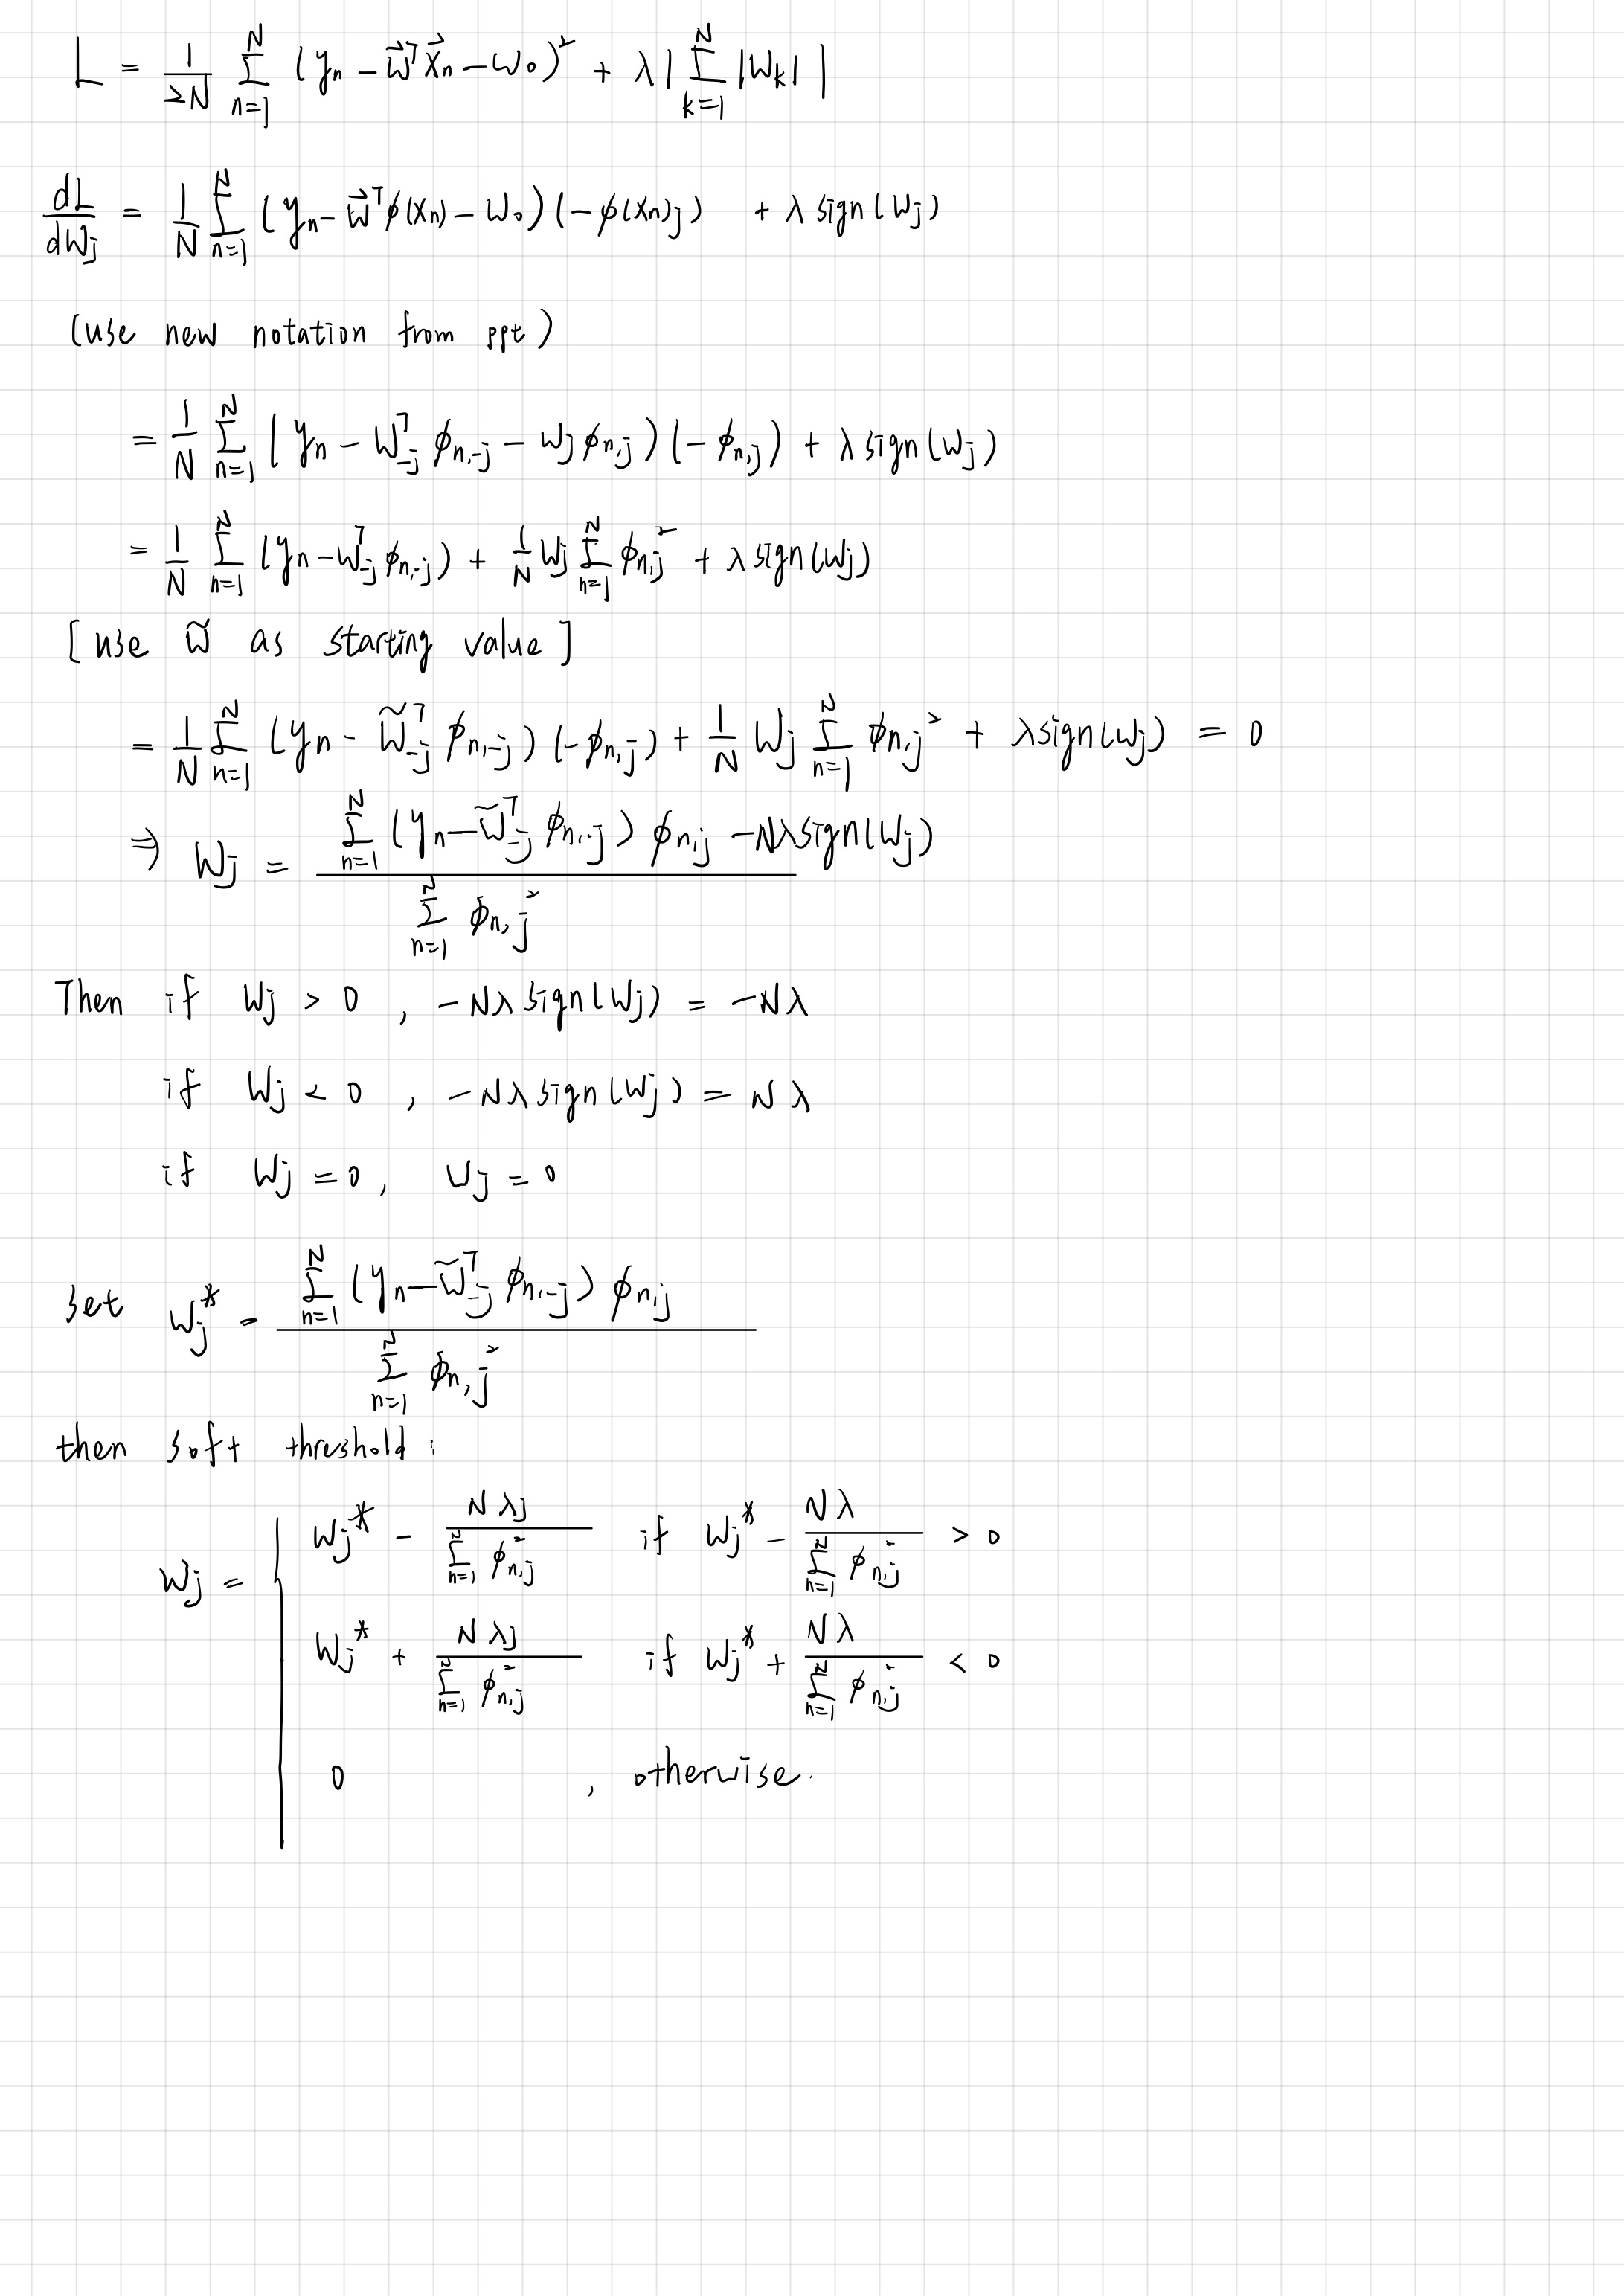 L = \frac{1}{2N} \sum_{n=1}^{N} (y_n - \vec{w}^T \vec{x}_n - w_0)^2 + λ | \sum_{k=1}^{N} |w_k| |
\frac{dL}{dw_j} = \frac{1}{N} \sum_{n=1}^{N} (y_n - \vec{w}^T φ(x_n) - w_0)(-φ(x_n)_j) + λ sign(w_j)
(use new notation from ppt)
= \frac{1}{N} \sum_{n=1}^{N} (y_n - w_{-j}^T φ_{n,-j} - w_j φ_{n,j})(-φ_{n,j}) + λ sign(w_j)
= \frac{1}{N} \sum_{n=1}^{N} (y_n - w_{-j}^T φ_{n,-j}) + \frac{1}{N} w_j \sum_{n=1}^{N} φ_{n,j}^2 + λ sign(w_j)
[use \tilde{w} as starting value]
= \frac{1}{N} \sum_{n=1}^{N} (y_n - \tilde{w}_{-j}^T φ_{n,-j})(-φ_{n,j}) + \frac{1}{N} w_j \sum_{n=1}^{N} φ_{n,j}^2 + λ sign(w_j) = 0
⇒ w_j = \frac{\sum_{n=1}^{N} (y_n - \tilde{w}_{-j}^T φ_{n,-j}) φ_{n,j} - Nλ sign(w_j)}{\sum_{n=1}^{N} φ_{n,j}^2}
Then if w_j > 0 , -Nλ sign(w_j) = -Nλ
if w_j < 0 , -Nλ sign(w_j) = Nλ
if w_j = 0, w_j = 0
set w_j^* = \frac{\sum_{n=1}^{N} (y_n - \tilde{w}_{-j}^T φ_{n,-j}) φ_{n,j}}{\sum_{n=1}^{N} φ_{n,j}^2}
then soft threshold:
w_j = { w_j^* - \frac{Nλ_j}{\sum_{n=1}^{N} φ_{n,j}^2} if w_j^* - \frac{Nλ}{\sum_{n=1}^{N} φ_{n,j}^2} > 0
w_j^* + \frac{Nλ_j}{\sum_{n=1}^{N} φ_{n,j}^2} if w_j^* + \frac{Nλ}{\sum_{n=1}^{N} φ_{n,j}^2} < 0
0 , otherwise.